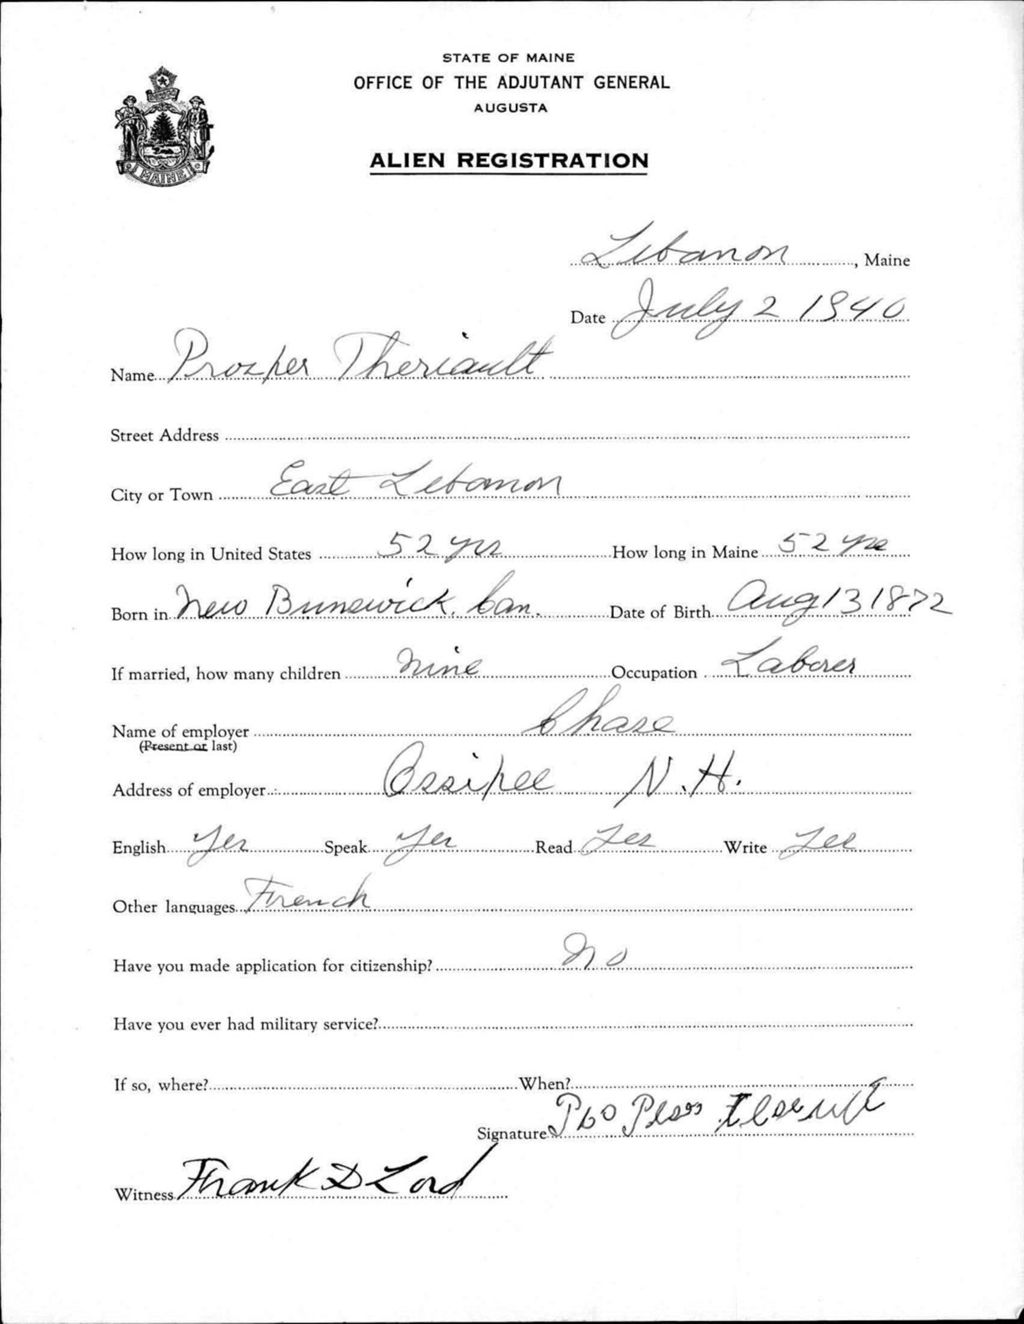 STATE OF MAINE
OFFICE OF THE ADJUTANT GENERAL
AUGUSTA
ALIEN REGISTRATION
MAINE
Lebanon, Maine
Date July 2 1940
Name Prosper Theriault
Street Address
City or Town East Lebanon
How long in United States 52 yrs How long in Maine 52 yrs
Born in New Brunswick, Can. Date of Birth Aug 13 1872
If married, how many children Nine Occupation Laborer
Name of employer Chase
(Present or last)
Address of employer Ossipee N.H.
English Yes Speak Yes Read Yes Write Yes
Other languages French
Have you made application for citizenship? No
Have you ever had military service?
If so, where? When?
Signature
Witness Frank D Lord